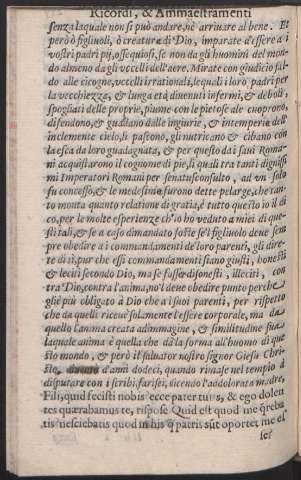 Ricordi, & Ammaestramenti
senza laquale non si può andare, nè arriuare al bene. Et
però ò figliuoli, ò creature di Dio, imparate d'essere a i
vostri padri pij, ossequiosi, se non da gli huomini del mon-
do almeno da gli vccelli dell'aere. Mirate con giudicio sal-
do alle cicogne, vccelli irrationali, lequali i loro padri per
la vecchiezza, & lunga età diuenuti infermi, & deboli,
spogliati delle proprie, piume con le pietose ale cuoprono,
difendono, & guardano dalle ingiurie, & intemperie dell'
inclemente cielo, li pascono, gli nutricano & cibano con
la esca da loro guadagnata, & per questo da i saui Roma-
ni acquistarono il cognome di pie, si quali tra tanti dignissi
mi Imperatori Romani per senatusconsulto, ad vn solo
fu concesso, & le medesime furono dette pelarge, che tan-
to monta quanto relatione di gratia, è tutto questo io il di
co, per le molte esperienze ch'io ho veduto a miei di que-
sti tali, & se a caso dimandato foste se'l figliuolo deue sem
pre obedire a i commandamenti de'loro parenti, gli dire-
te di sì, pur che essi commandamenti siano giusti, honesti
& leciti secondo Dio, ma se fosse disonesti, illeciti, con
tra Dio, contra l'anima, nō'l deue obedire punto perche
gliè più obligato à Dio che a i suoi parenti, per rispetto
che da quelli riceue solamente l'essere corporale, ma da
quello l'anima creata adimmagine, & similitudine sua
laquale anima è quella che dà la forma all'huomo di que
sto mondo, & però il saluator nostro signor Giesù Chri-
sto, d'anni dodeci, quando rimase nel tempio à
disputare con i scribi, farisei, dicendo l'addolorata madre,
Fili, quid fecisti nobis ecce pater tuus, & ego dolen
tes quærabamus te, rispose Quid est quod me quæreba
tis nesciebatis quod in his q̃ patris sūt oportet me es
ser